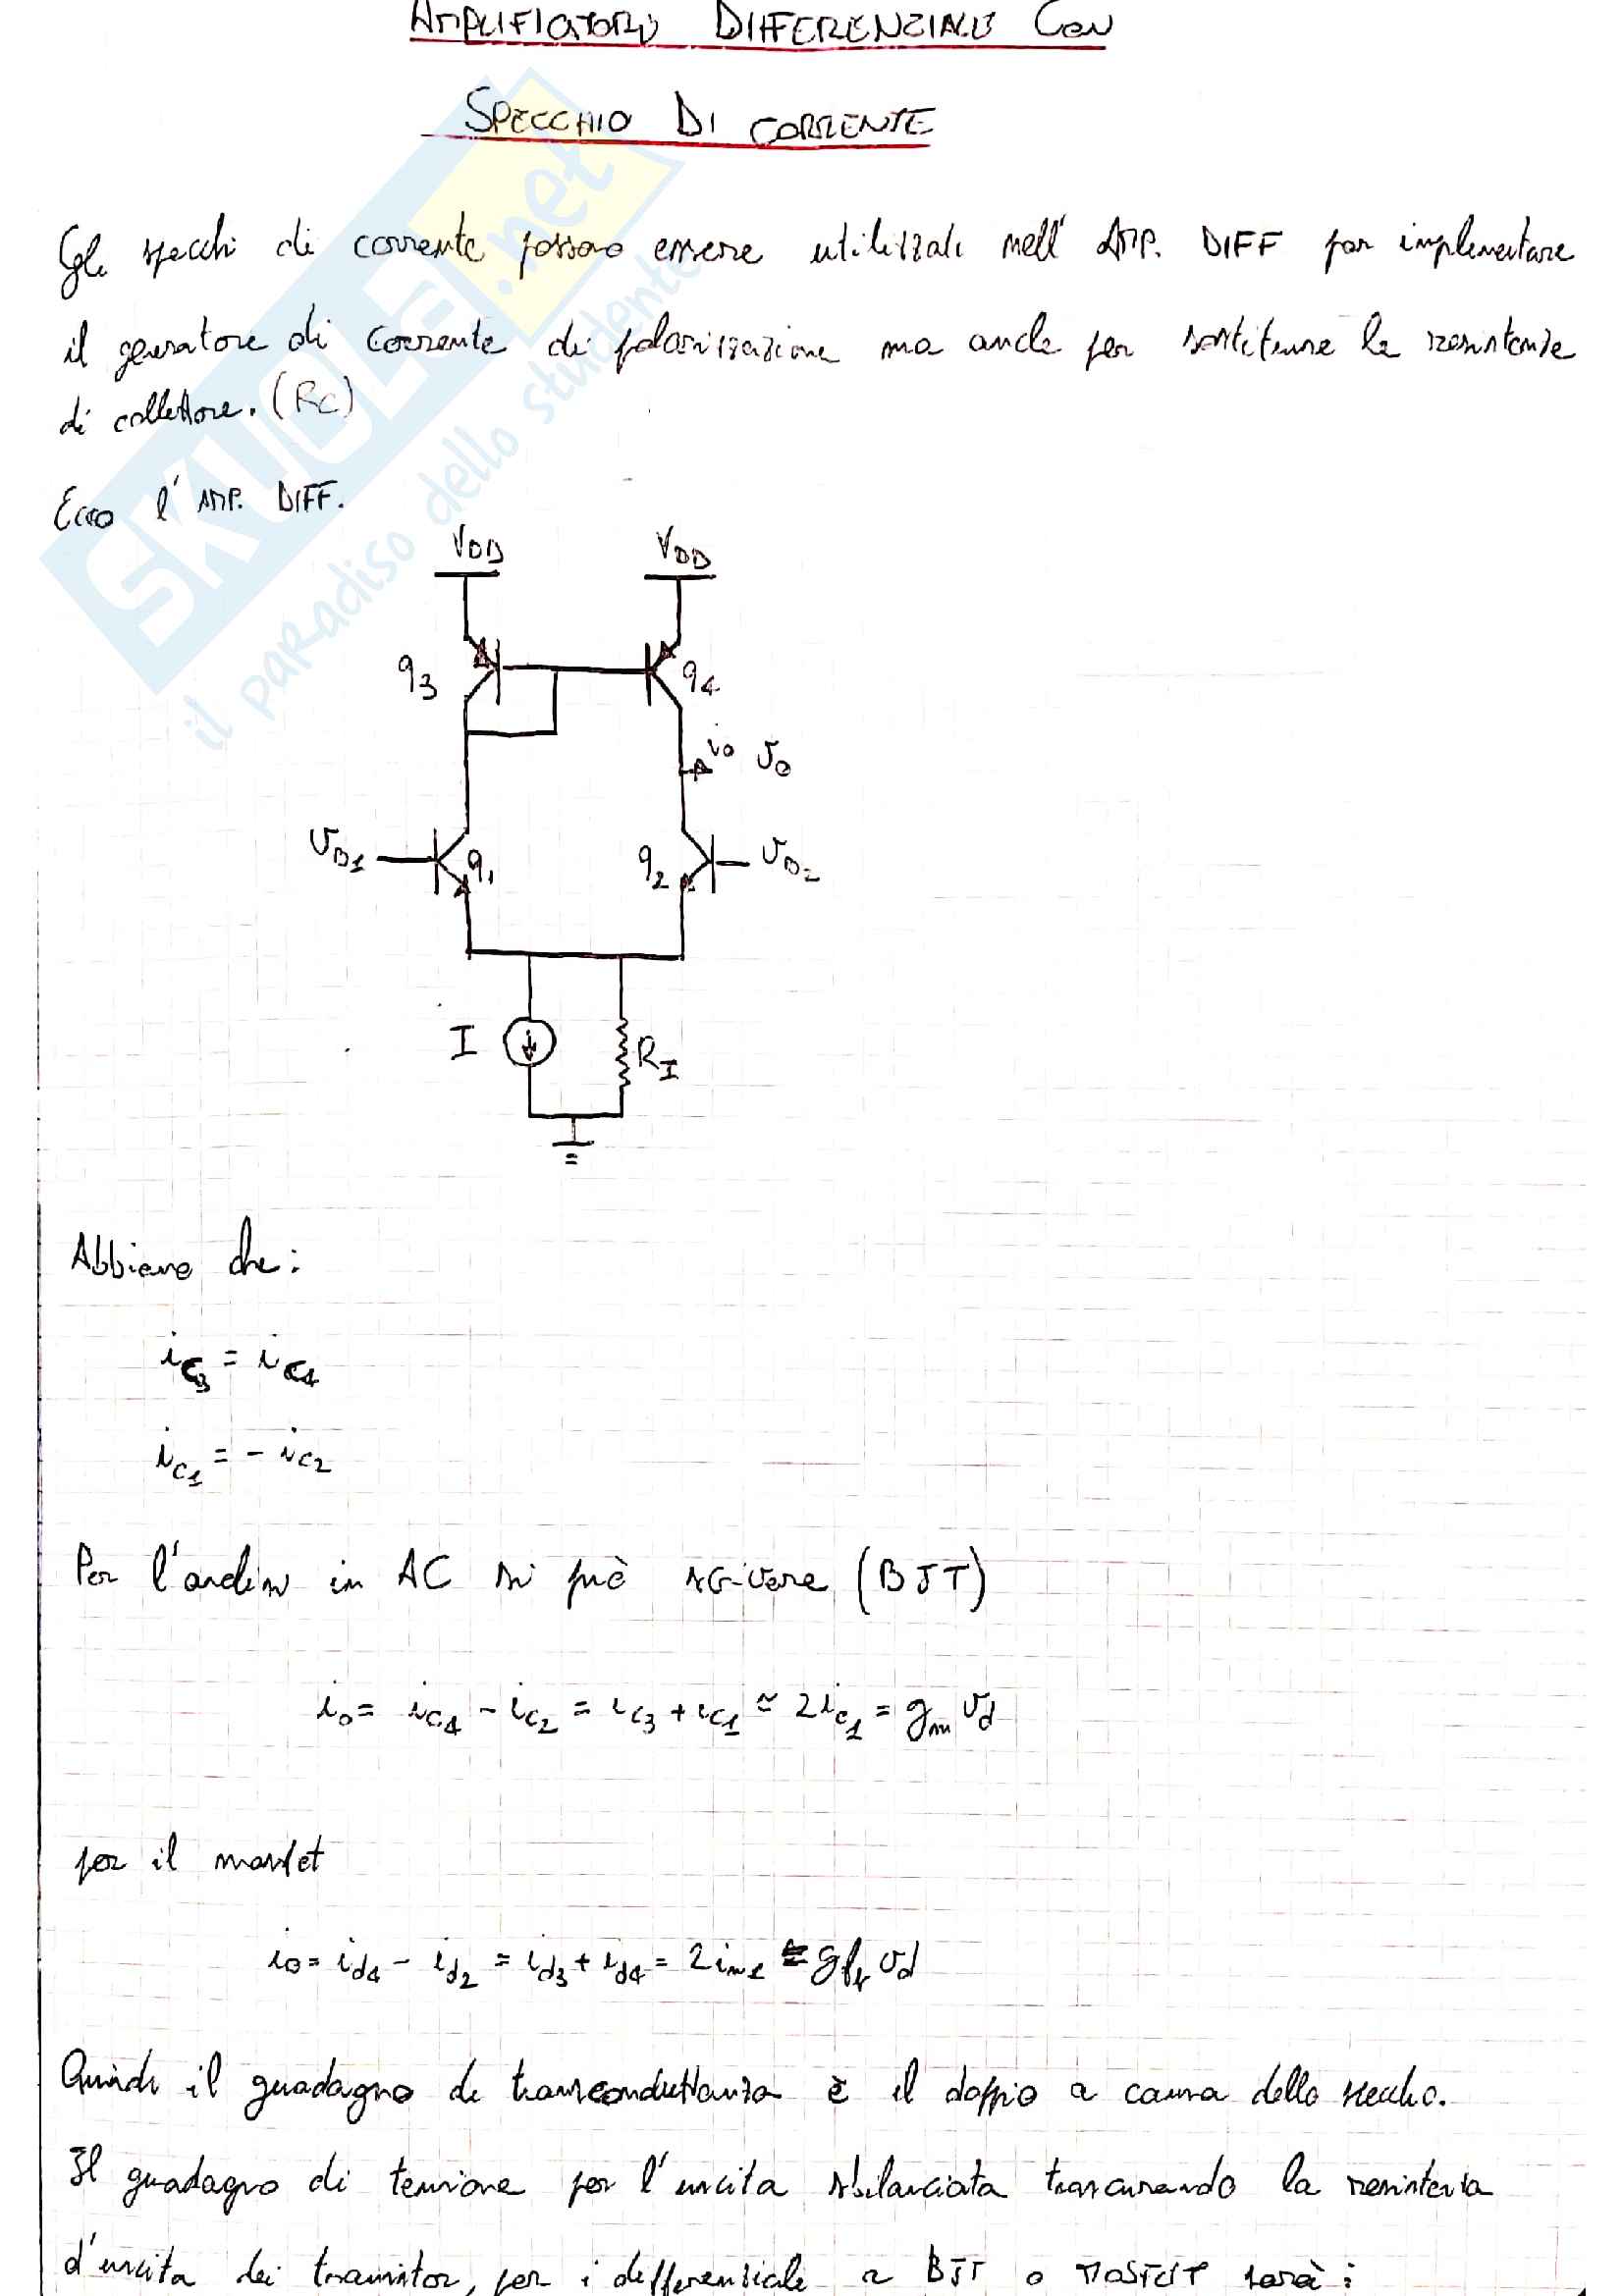 AMPLIFICATORE DIFFERENZIALE CON
SPECCHIO DI CORRENTE
Gli specchi di corrente possono essere utilizzati nell' AMP. DIFF per implementare
il generatore di corrente di polarizzazione ma anche per sostituire le resistenze
di collettore. (RC)
Ecco l'AMP. DIFF.
VDD VDD
q3 q4
io vo
vB1 q1 q2 vB2
I RI
Abbiamo che:
ic3 = ic4
ic1 = - ic2
Per l'analisi in AC si può scrivere (BJT)
io = ic4 - ic2 = ic3 + ic1 ≃ 2ic1 = gm vd
per il mosfet
io = id4 - id2 = id3 + id4 = 2 vd
Quindi il guadagno di transconduttanza è il doppio a causa dello specchio.
Il guadagno di tensione per l'uscita sbilanciata trascurando la resistenza
d'uscita dei transistor, per i differenziale a BJT o MOSFET sarà:
SKUOLA.net
il paradiso dello studente